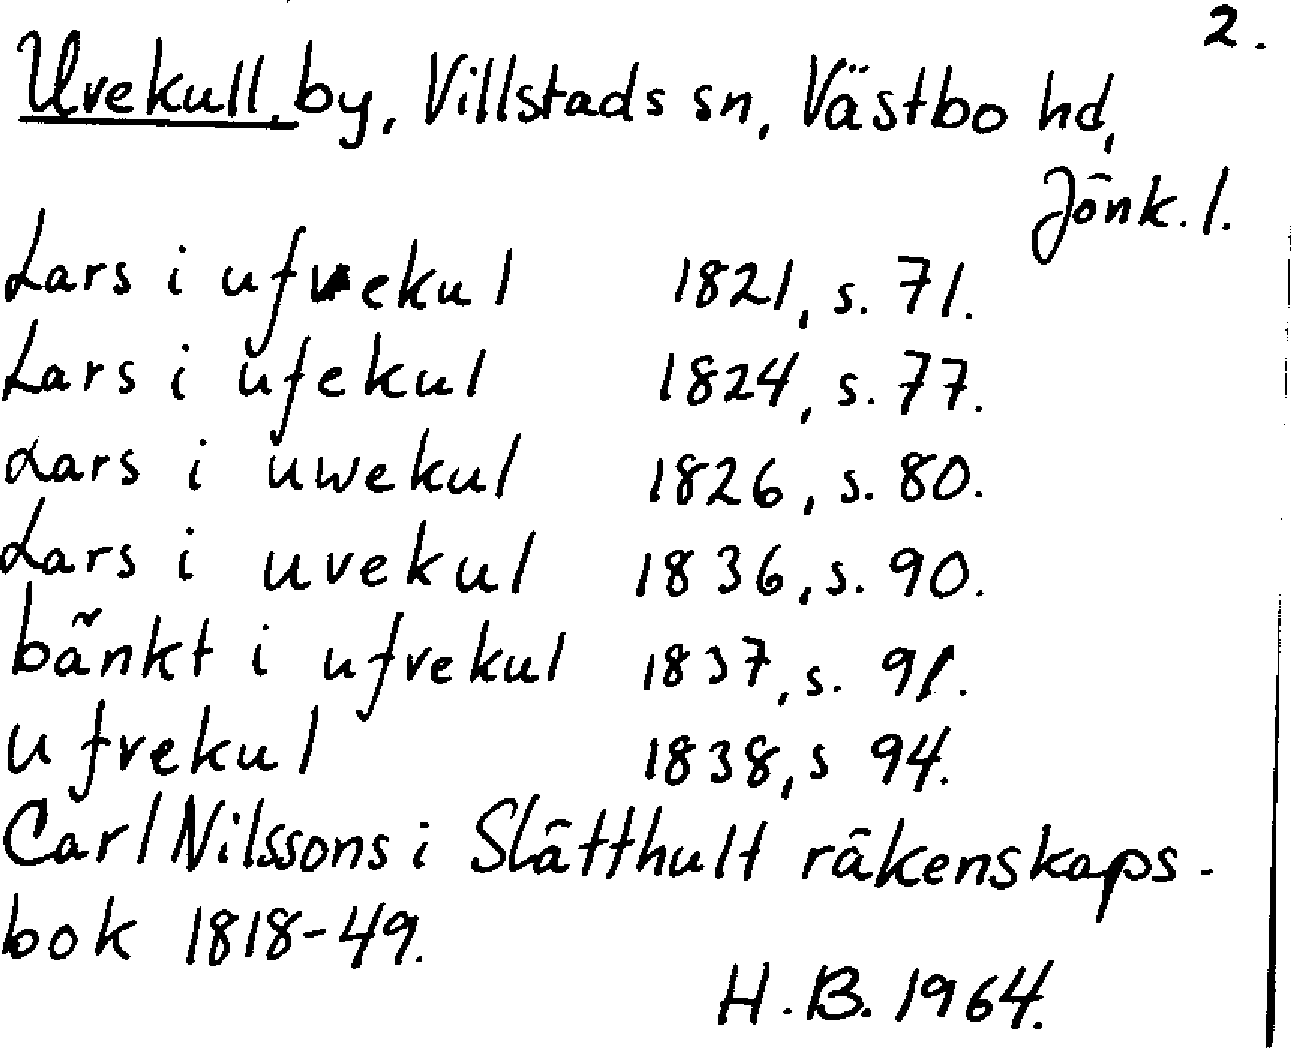 2.
Uvekull, by, Villstads sn, Västbo hd,
Jönk. l.
Lars i ufvekul 1821, s. 71.
Lars i ufekul 1824, s. 77.
Lars i uwekul 1826, s. 80.
Lars i uvekul 1836, s. 90.
bänkt i ufvekul 1837, s. 91.
ufvekul 1838, s 94.
Carl Nilssons i Slätthult räkenskaps-
bok 1818-49.
H.B. 1964.